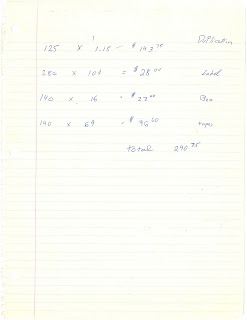 125 x 1.15 = $143.75 Duplication
280 x 10¢ = $28.00 Label
140 x 16 = $22.00 Box
140 x 69 = $96.60
Total 290.35